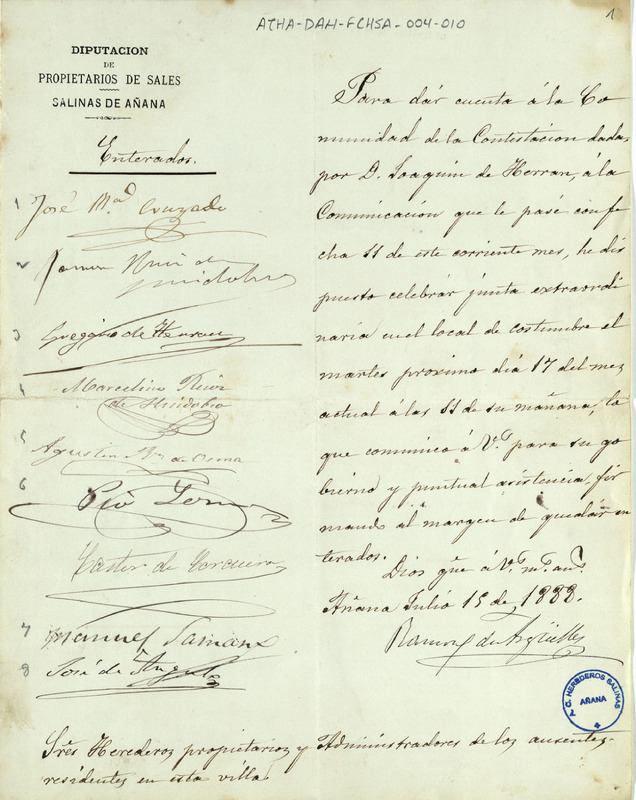 ATHA-DAH-FCHSA-004-010
1
DIPUTACION
DE
PROPIETARIOS DE SALES
SALINAS DE AÑANA
Enterados.
1 José Mª Cruzado
2 Ramon Ruiz de
Huidobro
3 Gregorio de Herran
4 Marcelino Ruiz
de Huidobro
5 Agustin de Osma
6 Pio
Castor de
7 Manuel
8 José de Angulo
Para dár cuenta á la Co
munidad de la Contestacion dada
por D. Joaquin de Herran, á la
Comunicación que le pasé con fe
cha 11 de este corriente mes, he dis
puesto celebrár junta extraordi
naria en el local de costumbre el
martes proximo dia 17 del mes
actual á las 11 de su mañana, lo
que comunico á Vs. para su go
bierno y puntual asistencia, fir
mando al margen de quedár en
terados.
Dios gue á Vs. ms. ans.
Añana Julio 15 de 1888.
Ramon de Argüelles
J. C. HEREDEROS SALINAS
AÑANA
Sres Herederos propietarios y Administradores de los ausentes
residentes en esta villa